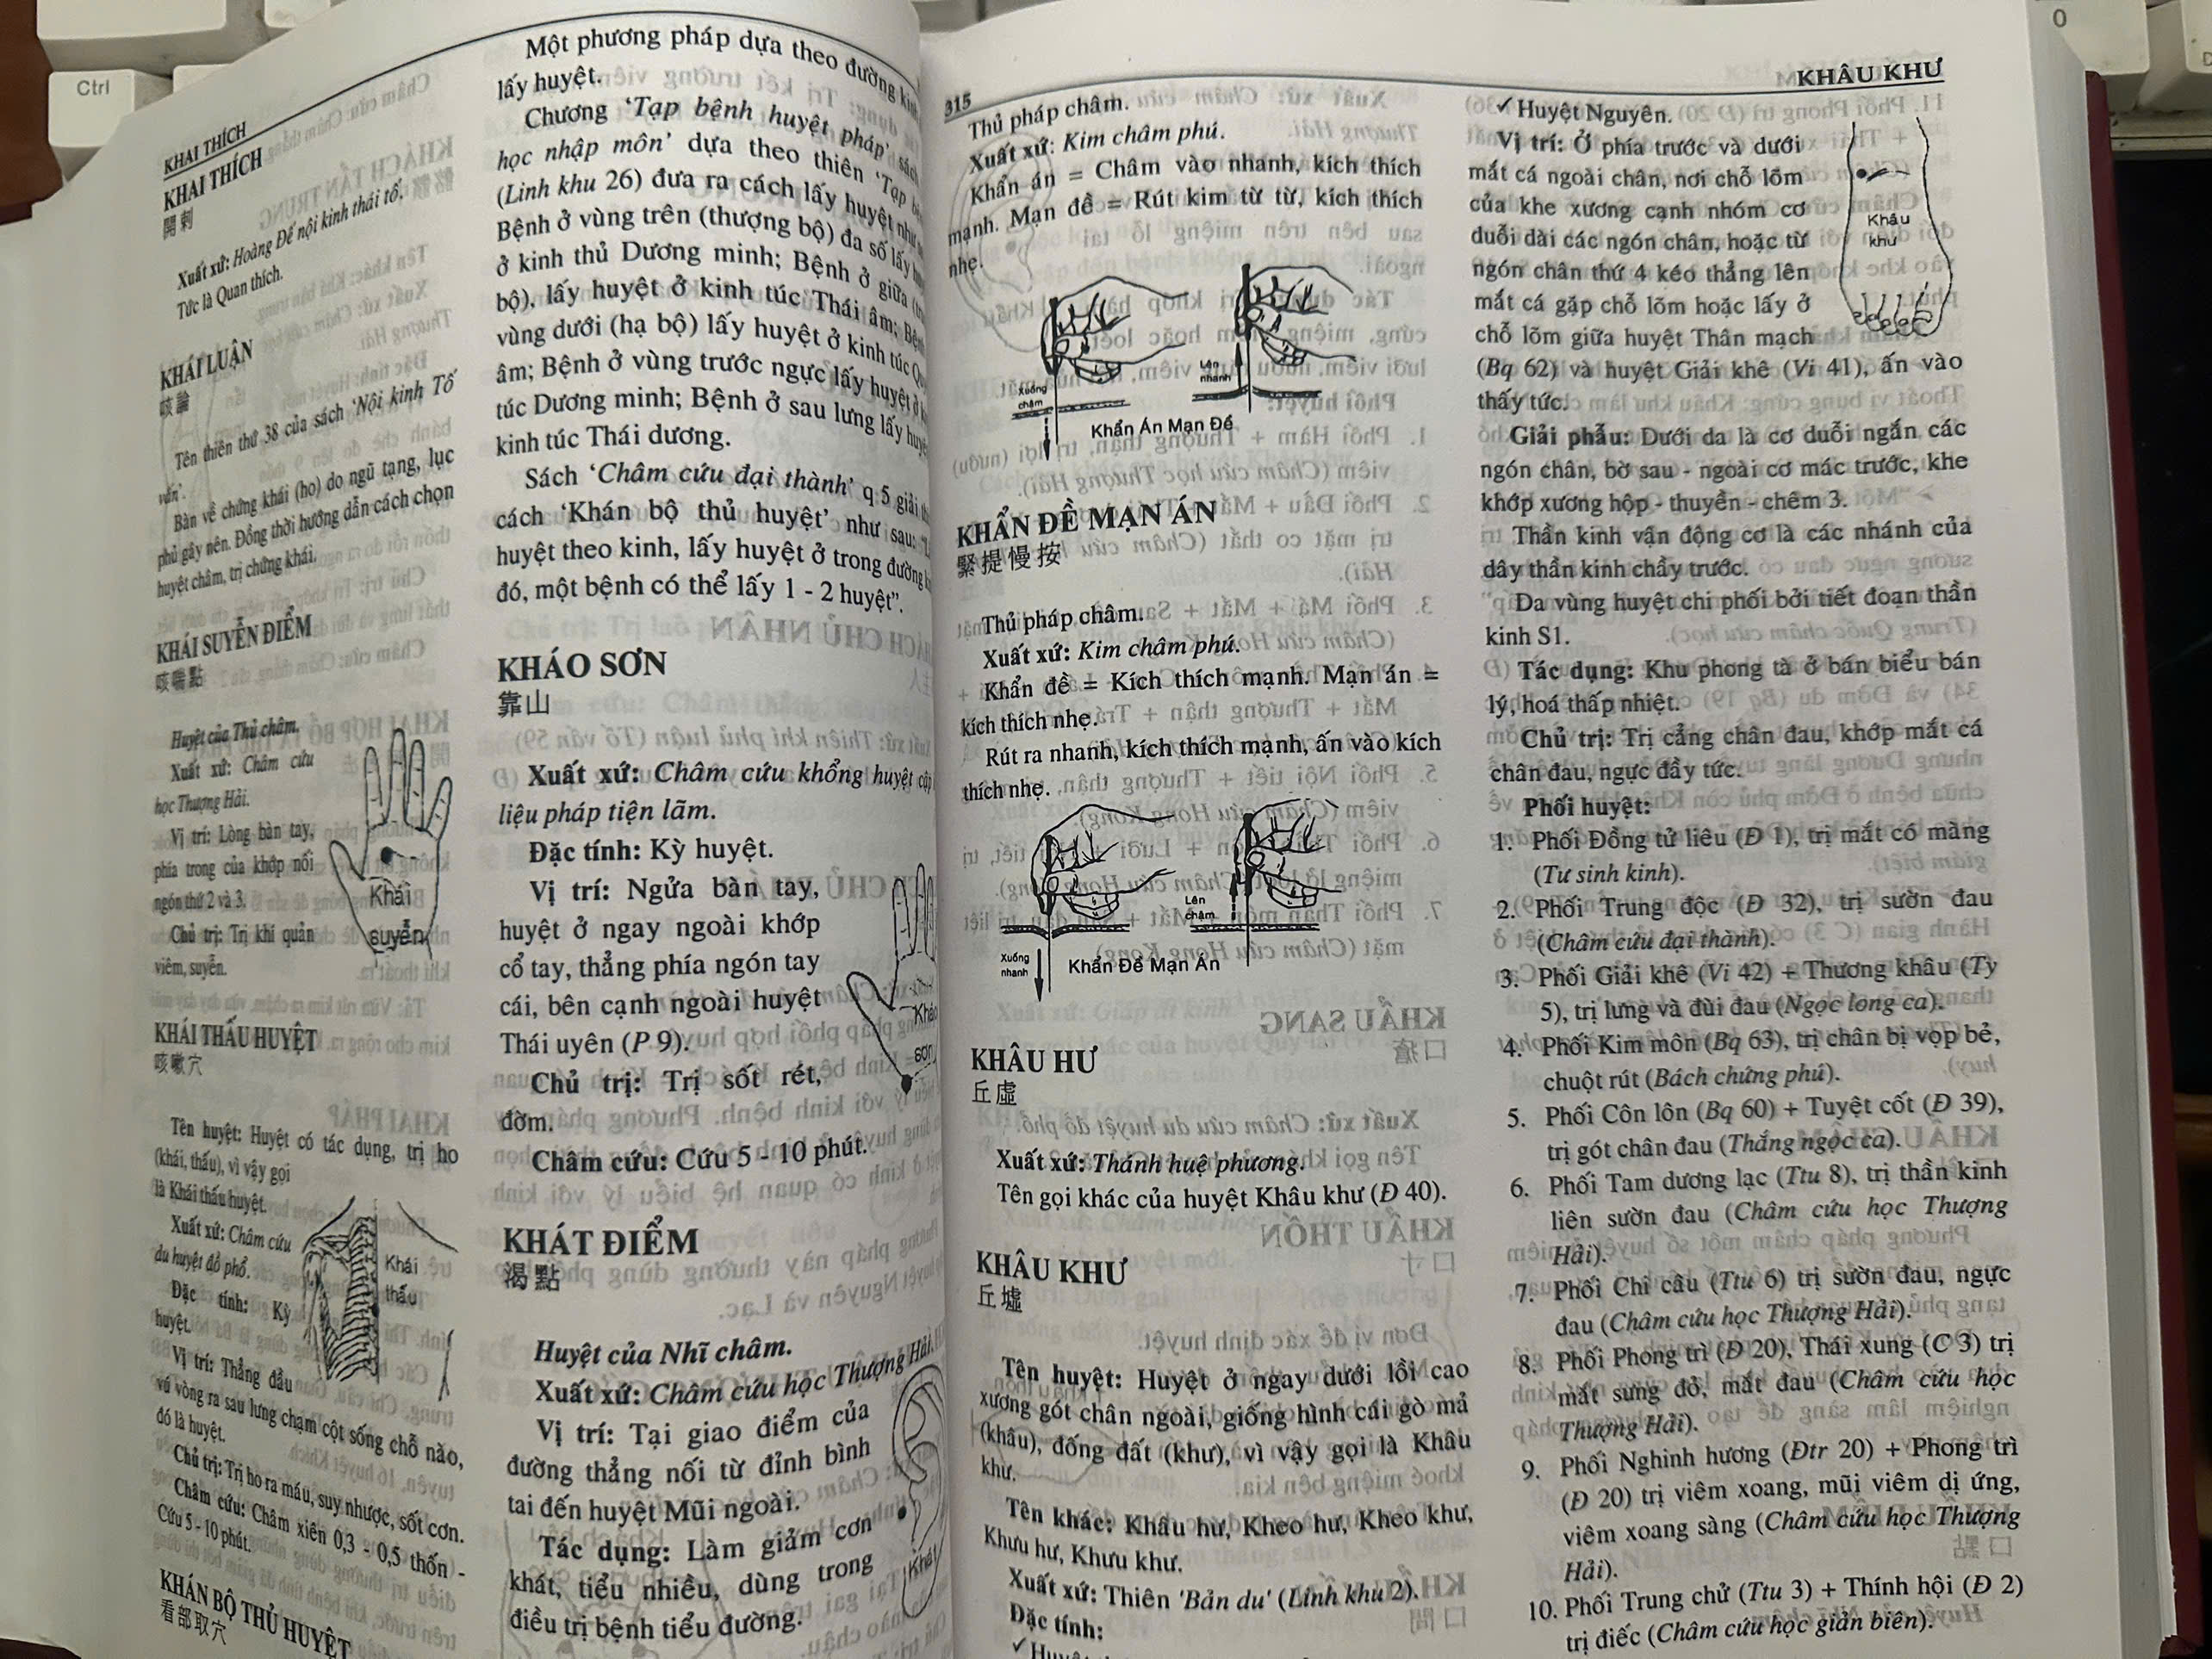 Ctrl
KHAI THÍCH
KHAI THÍCH
開刺
Xuất xứ: Hoàng Đế nội kinh thái tố.
Tức là Quan thích.
KHÁI LUẬN
咳論
Tên thiên thứ 38 của sách ‘Nội kinh Tố
vấn’.
Bàn về chứng khái (ho) do ngũ tạng, lục
phủ gây nên. Đồng thời hướng dẫn cách chọn
huyệt châm, trị chứng khái.
KHÁI SUYỄN ĐIỂM
咳喘點
Huyệt của Thủ châm.
Xuất xứ: Châm cứu
học Thượng Hải.
Vị trí: Lòng bàn tay,
phía trong của khớp nối
ngón thứ 2 và 3.
Chủ trị: Trị khí quản
viêm, suyễn.
Khái
suyễn
KHÁI THẤU HUYỆT
咳嗽穴
Tên huyệt: Huyệt có tác dụng, trị ho
(khái, thấu), vì vậy gọi
là Khái thấu huyệt.
Xuất xứ: Châm cứu
du huyệt đồ phổ.
Đặc tính: Kỳ
huyệt.
Vị trí: Thẳng đầu
vú vòng ra sau lưng chạm cột sống chỗ nào,
đó là huyệt.
Chủ trị: Trị ho ra máu, suy nhược, sốt cơn.
Châm cứu: Châm xiên 0,3 - 0,5 thốn -
Cứu 5 - 10 phút.
Khái
thấu
KHÁN BỘ THỦ HUYỆT
看部取穴
Một phương pháp dựa theo đường kinh
lấy huyệt.
Chương ‘Tạp bệnh huyệt pháp’ sách
học nhập môn’ dựa theo thiên ‘Tạp
(Linh khu 26) đưa ra cách lấy huyệt như
Bệnh ở vùng trên (thượng bộ) đa số lấy
ở kinh thủ Dương minh; Bệnh ở giữa
bộ), lấy huyệt ở kinh túc Thái âm; Bệnh
vùng dưới (hạ bộ) lấy huyệt ở kinh túc
âm; Bệnh ở vùng trước ngực lấy huyệt ở
túc Dương minh; Bệnh ở sau lưng lấy huyệt
kinh túc Thái dương.
Sách ‘Châm cứu đại thành’ q 5 giải
cách ‘Khán bộ thủ huyệt’ như sau:
huyệt theo kinh, lấy huyệt ở trong đường
đó, một bệnh có thể lấy 1 - 2 huyệt”.
KHÁO SƠN
靠山
Xuất xứ: Châm cứu khổng huyệt cập
liệu pháp tiện lãm.
Đặc tính: Kỳ huyệt.
Vị trí: Ngửa bàn tay,
huyệt ở ngay ngoài khớp
cổ tay, thẳng phía ngón tay
cái, bên cạnh ngoài huyệt
Thái uyên (P 9).
Chủ trị: Trị sốt rét,
đờm.
Châm cứu: Cứu 5 - 10 phút.
Kháo
sơn
KHÁT ĐIỂM
渴點
Huyệt của Nhĩ châm.
Xuất xứ: Châm cứu học Thượng Hải.
Vị trí: Tại giao điểm của
đường thẳng nối từ đỉnh bình
tai đến huyệt Mũi ngoài.
Tác dụng: Làm giảm cơn
khát, tiểu nhiều, dùng trong
điều trị bệnh tiểu đường.
Khát
315
Thủ pháp châm.
Xuất xứ: Kim châm phú.
Khẩn án = Châm vào nhanh, kích thích
mạnh. Mạn đề = Rút kim từ từ, kích thích
nhẹ.
Xuống
chậm
Lên
nhanh
Khẩn Án Mạn Đề
KHẨN ĐỀ MẠN ÁN
緊提慢按
Thủ pháp châm.
Xuất xứ: Kim châm phú.
Khẩn đề = Kích thích mạnh. Mạn án =
kích thích nhẹ.
Rút ra nhanh, kích thích mạnh, ấn vào kích
thích nhẹ.
Xuống
nhanh
Lên
chậm
Khẩn Đề Mạn Án
KHÂU HƯ
丘虛
Xuất xứ: Thánh huệ phương.
Tên gọi khác của huyệt Khâu khư (Đ 40).
KHÂU KHƯ
丘墟
Tên huyệt: Huyệt ở ngay dưới lồi cao
xương gót chân ngoài, giống hình cái gò mả
(khâu), đống đất (khư), vì vậy gọi là Khâu
khư.
Tên khác: Khâu hư, Kheo hư, Kheo khư,
Khưu hư, Khưu khư.
Xuất xứ: Thiên 'Bản du' (Linh khu 2).
Đặc tính:
KHÂU KHƯ
✓ Huyệt Nguyên.
Vị trí: Ở phía trước và dưới
mắt cá ngoài chân, nơi chỗ lõm
của khe xương cạnh nhóm cơ
duỗi dài các ngón chân, hoặc từ
ngón chân thứ 4 kéo thẳng lên
mắt cá gặp chỗ lõm hoặc lấy ở
chỗ lõm giữa huyệt Thân mạch
(Bq 62) và huyệt Giải khê (Vi 41), ấn vào
thấy tức.
Khâu
khư
Giải phẫu: Dưới da là cơ duỗi ngắn các
ngón chân, bờ sau - ngoài cơ mác trước, khe
khớp xương hộp - thuyền - chêm 3.
Thần kinh vận động cơ là các nhánh của
dây thần kinh chầy trước.
Da vùng huyệt chi phối bởi tiết đoạn thần
kinh S1.
Tác dụng: Khu phong tà ở bán biểu bán
lý, hoá thấp nhiệt.
Chủ trị: Trị cẳng chân đau, khớp mắt cá
chân đau, ngực đầy tức.
Phối huyệt:
1. Phối Đồng tử liêu (Đ 1), trị mắt có màng
(Tư sinh kinh).
2. Phối Trung độc (Đ 32), trị sườn đau
(Châm cứu đại thành).
3. Phối Giải khê (Vi 42) + Thương khâu (Ty
5), trị lưng và đùi đau (Ngọc long ca).
4. Phối Kim môn (Bq 63), trị chân bị vọp bẻ,
chuột rút (Bách chứng phú).
5. Phối Côn lôn (Bq 60) + Tuyệt cốt (Đ 39),
trị gót chân đau (Thắng ngọc ca).
6. Phối Tam dương lạc (Ttu 8), trị thần kinh
liên sườn đau (Châm cứu học Thượng
Hải).
7. Phối Chi câu (Ttu 6) trị sườn đau, ngực
đau (Châm cứu học Thượng Hải).
8. Phối Phong trì (Đ 20), Thái xung (C 3) trị
mắt sưng đỏ, mắt đau (Châm cứu học
Thượng Hải).
9. Phối Nghinh hương (Đtr 20) + Phong trì
(Đ 20) trị viêm xoang, mũi viêm dị ứng,
viêm xoang sàng (Châm cứu học Thượng
Hải).
10. Phối Trung chử (Ttu 3) + Thính hội (Đ 2)
trị điếc (Châm cứu học giản biên).